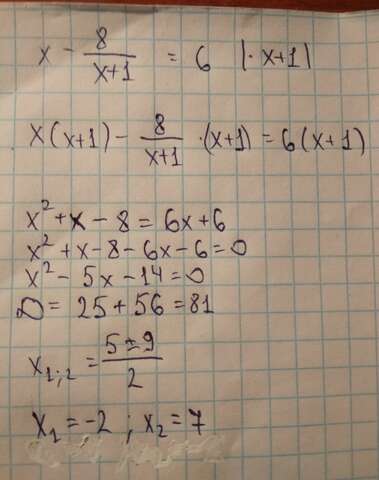 x - 8/(x+1) = 6 |· x+1|
x(x+1) - 8/(x+1) ·(x+1) = 6(x+1)
x² + x - 8 = 6x + 6
x² + x - 8 - 6x - 6 = 0
x² - 5x - 14 = 0
D = 25 + 56 = 81
x₁;₂ = (5 ± 9)/2
x₁ = -2 ; x₂ = 7